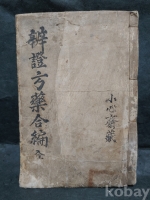 辨證方藥合編 全
小心齋藏
kobay